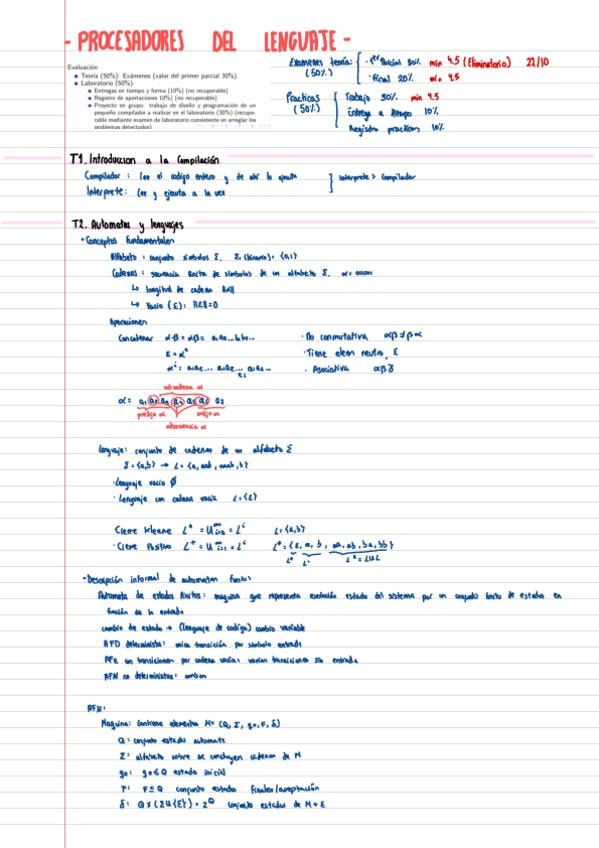 - PROCESADORES DEL LENGUAJE -
Evaluación
Teoría (50%): Exámenes (valor del primer parcial 30%).
Laboratorio (50%):
Entregas en tiempo y forma (10%) (no recuperable)
Registro de aportaciones 10%) (no recuperable)
Proyecto en grupo: trabajo de diseño y programación de un
pequeño compilador a realizar en el laboratorio (30%) (recupe-
rable mediante examen de laboratorio consistente en arreglar los
problemas detectados)
Examenes teoría: (50%)
1er Parcial 30% min 4.5 (Eliminatorio) 22/10
Final 20% min 4.5
Practicas (50%)
Trabajo 30% min 4.5
Entrega a tiempo 10%
Registro practicas 10%
T1. Introduccion a la Compilación
Compilador : lee el codigo entero y de ahí lo ejecuta
Interprete : lee y ejecuta a la vez
interprete > compilador
T2. Automatas y lenguajes
• Conceptos fundamentales
Alfabeto : conjunto símbolos Σ. Σ (binario): {0,1}
Cadenas : secuencia finita de simbolos de un alfabeto Σ.
↳ longitud de cadena
↳ Vacio (ε): ||ε||=0
Operaciones
Concatenar α·β = αβ =
· No conmutativa αβ ≠ βα
ε = α⁰
· Tiene elem neutro, ε
· Asociativa αβγ
subcadena α
α =
prefijo α sufijo α
subsecuencia α
Lenguaje: conjunto de cadenas de un alfabeto Σ
Σ = {a,b} → L = {a, aab, aaab, b}
· Lenguaje vacio ∅
· Lenguaje con cadena vacia L = {ε}
Cierre Kleene L* = L={a,b}
· Cierre Positivo L⁺ = L* = {ε, a, b, aa, ab, ba, bb}
L⁰ L¹ L² = LUL
• Descripción informal de automatas finitos
Automata de estados finitos: maquina que representa evolución estado del sistema por un conjunto finito de estados en
función de la entrada
cambio de estado → (lenguaje de codigo) cambio variable
AFD determinista: unica transición por simbolo entrada
AFε con transiciones por cadena vacia: varian transiciones sin entrada
AFN no deterministas: ambas
AFN:
Maquina: contiene elementos M = (Q, Σ, q₀, F, δ)
Q = conjunto estados automata
Σ: alfabeto sobre se construyen cadenas de M
q₀: q₀ ∈ Q estado inicial
F: F ⊆ Q conjunto estados finales/aceptación
δ: Q x (Σ U {ε}) = 2^Q conjunto estados de M + ε